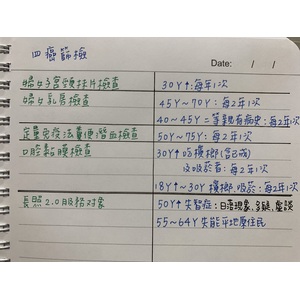 四癌篩檢
Date: / /
婦女子宮頸抹片檢查 30Y↑:每年1次
婦女乳房檢查 45Y~70Y:每2年1次
40~45Y二等親有病史:每2年1次
定量免疫法糞便潛血檢查 50Y~75Y:每2年1次
口腔黏膜檢查 30Y↑吃檳榔(含已戒)
及吸菸者:每2年1次
18Y↑~30Y檳榔、吸菸:每2年1次
長照2.0服務對象 50Y↑失智症:日落現象、多疑、虛談
55~64Y失能平地原住民